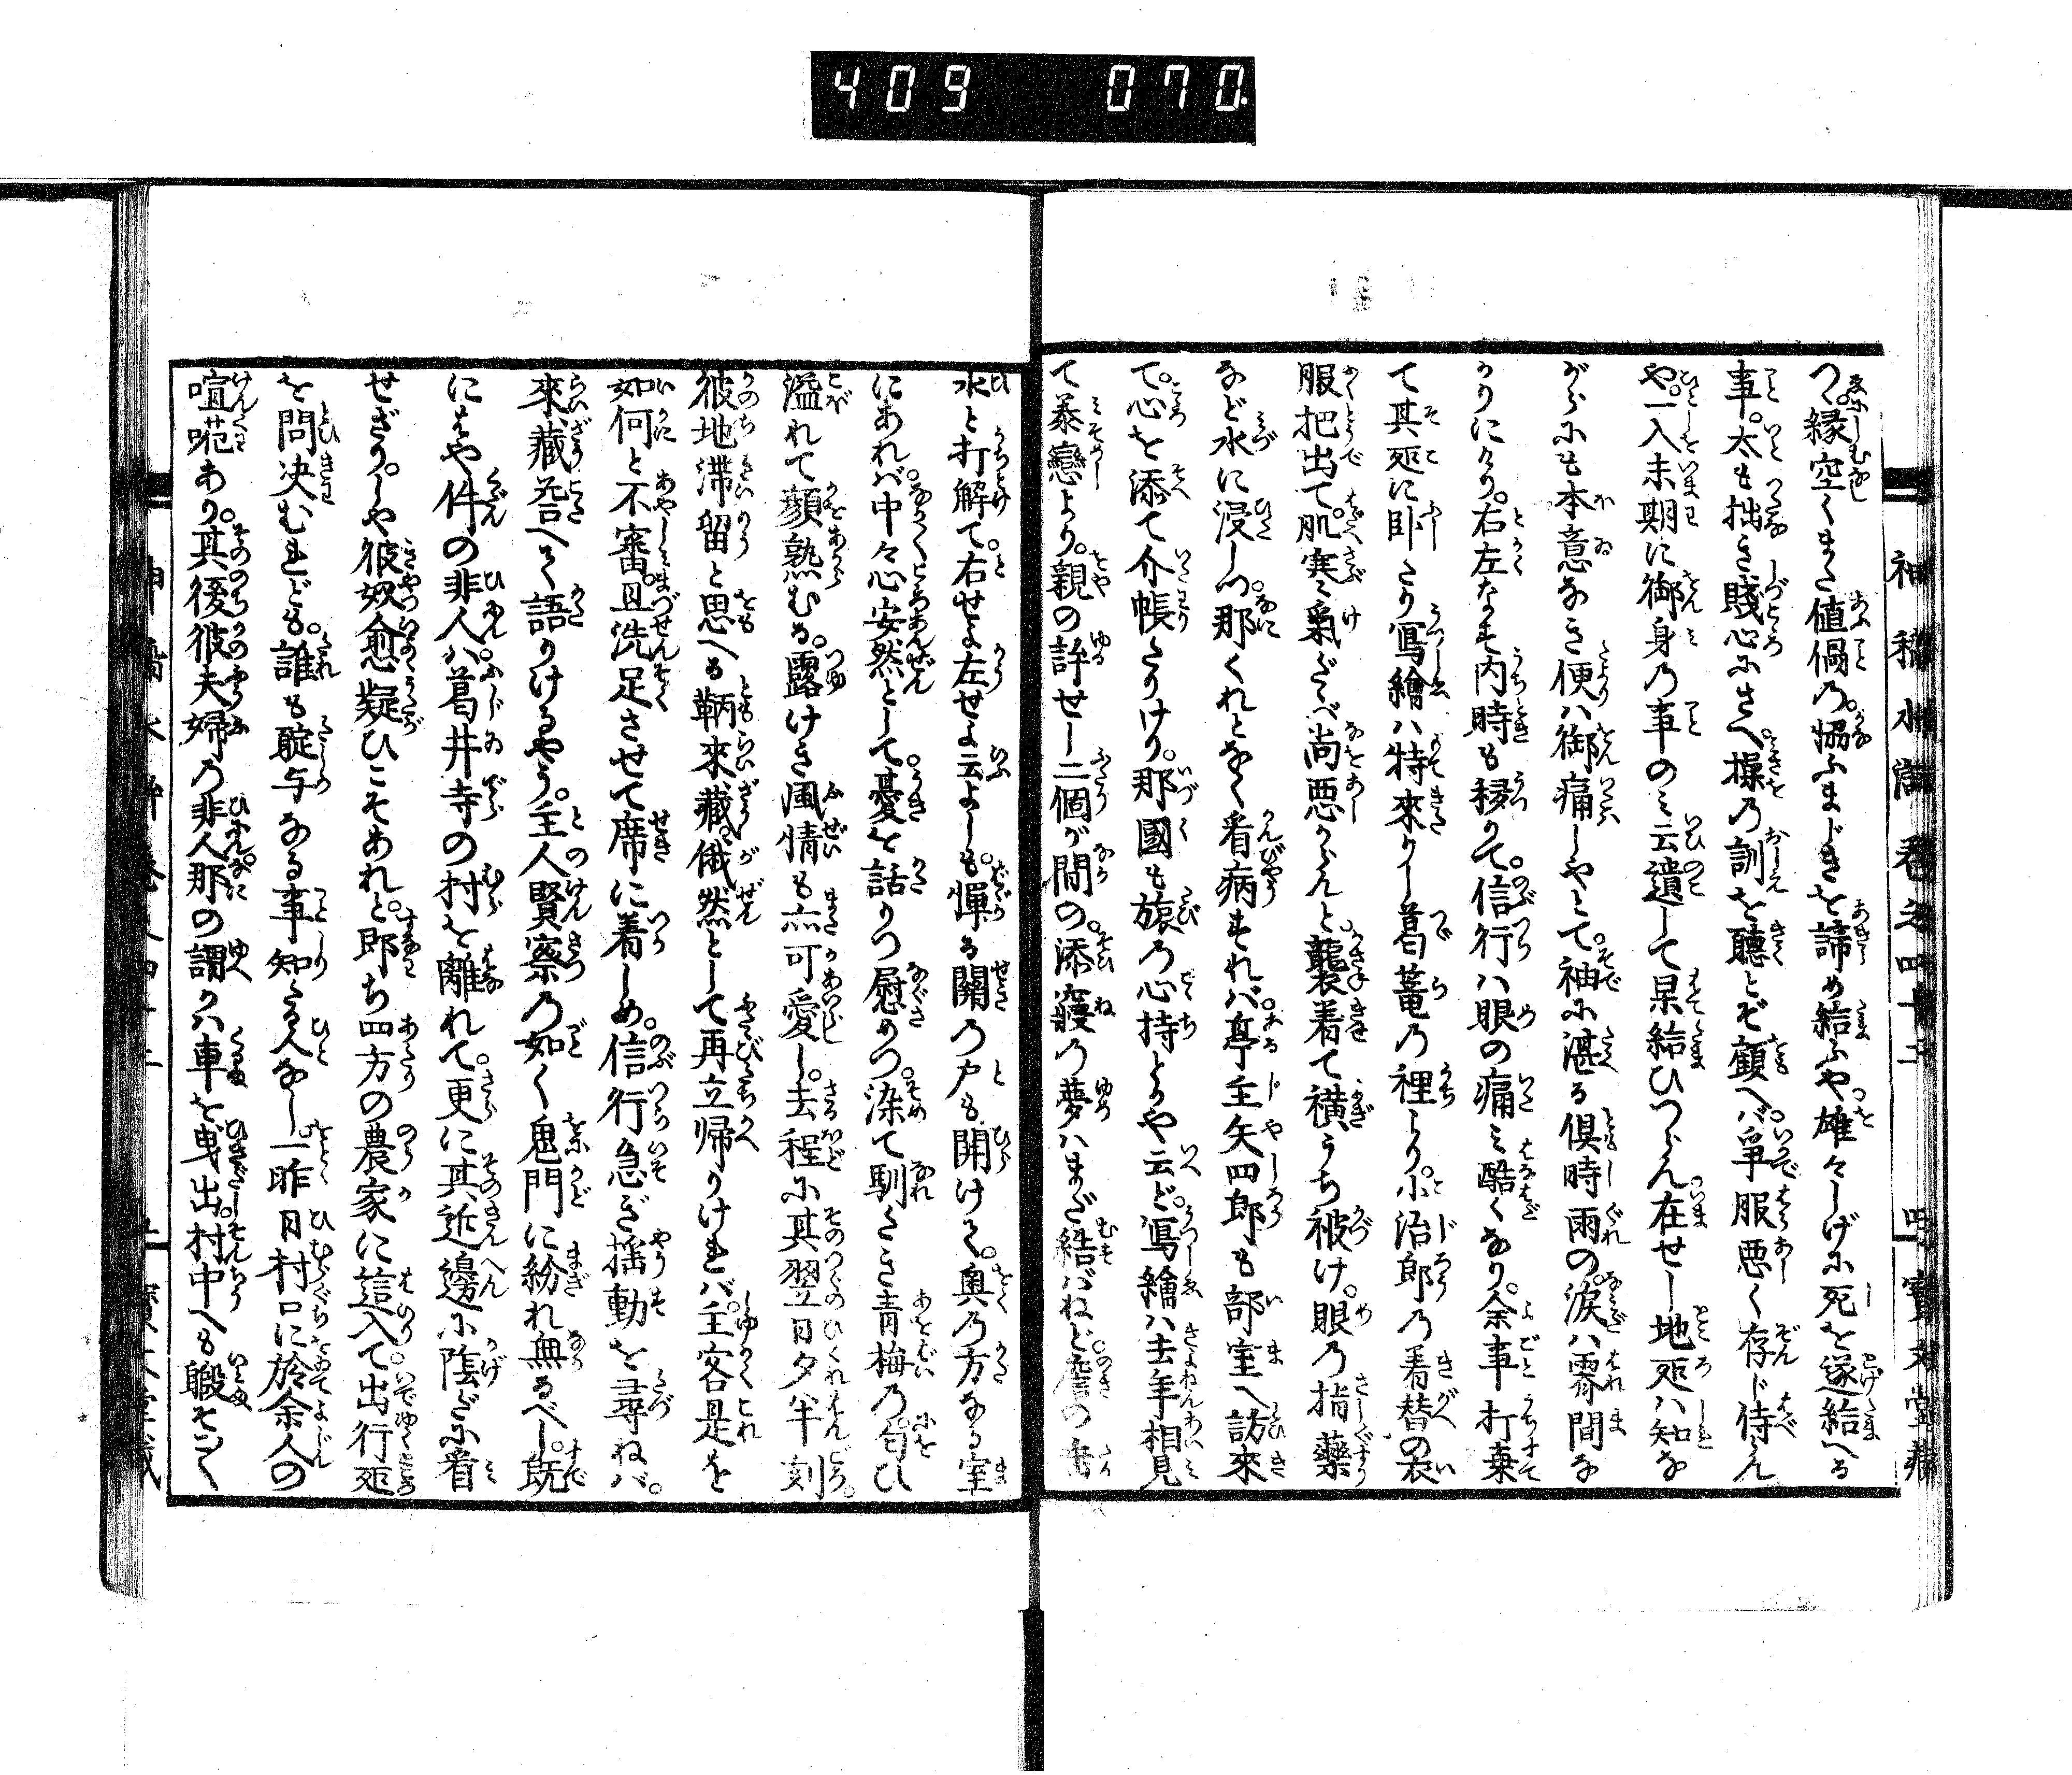 409 070
つ。縁空くまた値偶乃。協ふまじきを諦め結ふや雄々しげに死を遂結へる
事。太も拙き賤心にさへ。操乃訓を聴とぞ顧へバ。争服悪く存じ侍らん
や。一入末期に御身乃事のミ云遺して果結ひつらん。在せし地処ハ知な
がらにも本意なき便ハ御痛しやとて。袖に湛る倶時雨の。涙ハ霽間な
かりにけり。右左なす内時も移りて。信行ハ眼の痛ミ酷くなり。余事打棄
て其処に臥たり寫繪ハ特來りし葛篭乃裡より。小治郎乃着替の衣
服把出て。肌寒ミ氣だべ尚悪からんと。襲着て横うち被け。眼乃指藥
など水に浸しつ。那くれとなく看病すれバ。亭主矢四郎も部室へ訪來
て。心を添て介帳たりけり。那國も旅乃心持とうや云ど。寫繪ハ去年相見
て慕戀より。親の許せし二個が間の。添寝乃夢ハまだ結バねど。簷の雪
水と打解て。右せよ左せよ云よしも。憚る關乃戸も開けそ。奥乃方なる室
にあれバ。中々心安然として。憂を話りつ慰めつ。染て馴たき青梅乃匂ひ
溢れて顔熟むる。露けき風情も亦可愛し。去程に其翌日夕半刻。
彼地滞留と思へる鞆來藏。俄然として再立帰りけれバ。主客是を
如何と不審。且洗足させて席に着しめ。信行急ぎ揺動を尋ねバ。
來藏荅へて語りけるやう。主人賢察乃如く鬼門に紛れ無るべし。既
にはや件の非人ハ。葛井寺の村を離れて。更に其近邊に陰だに看
せざり。しや彼奴愈疑ひこそあれと。即ち四方の農家に這入て。出行処
を問决むれども。誰も聢与なる事知る人なし。一昨日村口に於余人の
喧呃あり。其後彼夫婦乃非人。那の謂りハ車を曳出。村中へも暇そこく